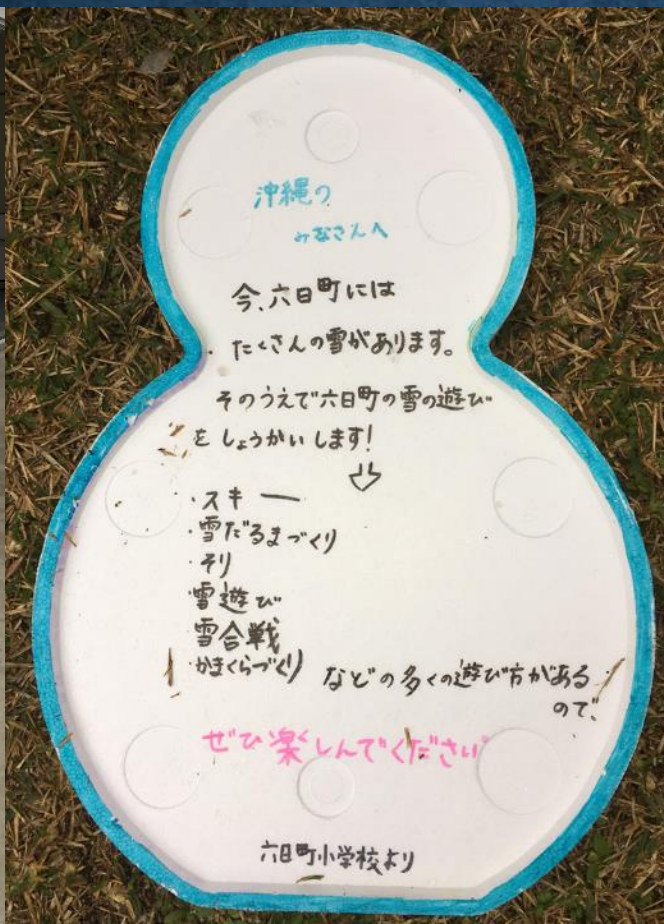 沖縄の
みなさんへ
今、六日町には
たくさんの雪があります。
そのうえで六日町の雪の遊び
をしょうかいします!
⇩
・スキー
・雪だるまづくり
・そり
・雪遊び
雪合戦
・かまくらづくり などの多くの遊び方がある
ので、
ぜひ楽しんでください
六日町小学校より